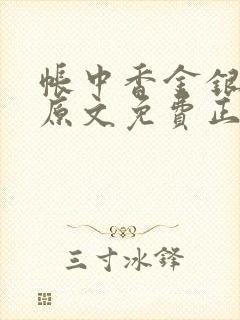 帳中香金銀
原文免費正
三寸冰鋒